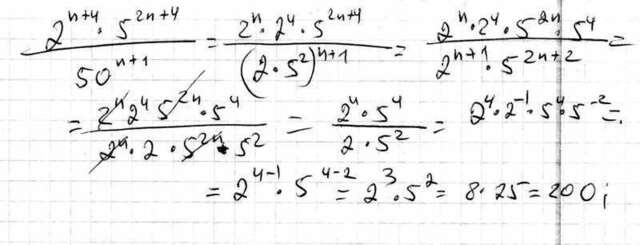 2^{n+4} · 5^{2n+4} / 50^{n+1} = 2^n · 2^4 · 5^{2n+4} / (2 · 5^2)^{n+1} = 2^n · 2^4 · 5^{2n} · 5^4 / 2^{n+1} · 5^{2n+2} =
= 2^n 2^4 5^{2n} · 5^4 / 2^n · 2 · 5^{2n} · 5^2 = 2^4 · 5^4 / 2 · 5^2 = 2^4 · 2^{-1} · 5^4 · 5^{-2} =
= 2^{4-1} · 5^{4-2} = 2^3 · 5^2 = 8 · 25 = 200;